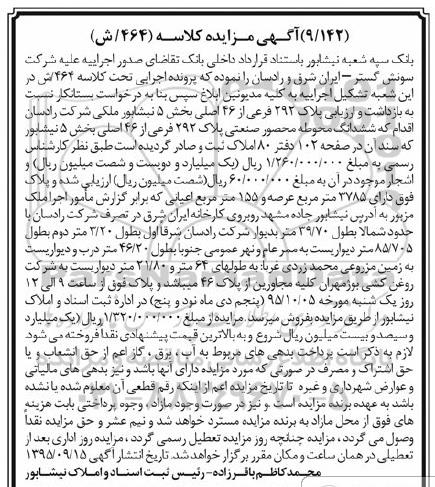 (۹/۱۴۲)آگهی مزایده کلاسه (۴۶۴/ش)
بانک سپه شعبه نیشابور باستناد قرارداد داخلی بانک تقاضای صدور اجراییه علیه شرکت
سونش گستر – ایران شرق و رادسان را نموده که پرونده اجرایی تحت کلاسه ۴۶۴/ش در
این شعبه تشکیل اجراییه به کلیه مدیونین ابلاغ سپس بنا به درخواست بستانکار نسبت
به بازداشت و ارزیابی پلاک ۲۹۲ فرعی از ۴۶ اصلی بخش ۵ نیشابور ملکی شرکت رادسان
اقدام که ششدانگ محوطه محصور صنعتی پلاک ۲۹۲ فرعی از ۴۶ اصلی بخش ۵ نیشابور
که سند آن در صفحه ۱۰۲ دفتر ۸۰ املاک ثبت و صادر گردیده است طبق نظر کارشناس
رسمی به مبلغ ۱/۲۶۰/۰۰۰/۰۰۰ ریال (یک میلیارد و دویست و شصت میلیون ریال) و
اشجار موجود در آن به مبلغ ۶۰/۰۰۰/۰۰۰ ریال(شصت میلیون ریال) ارزیابی شد و پلاک
فوق دارای ۳۷۸۵ متر مربع عرصه و ۱۵۵ متر مربع اعیانی که برابر گزارش مأمور اجرا ملک
مزبور به آدرس نیشابور جاده مشهد روبروی کارخانه ایران شرق در تصرف شرکت رادسان با
حدود شمالا بطول ۳۹/۷۰ متر بدیوار شرکت رادسان شرقا اول بطول ۳/۲۰ متر دوم بطول
۸۵/۷۰۵ متر دیواریست به معبر عام و نهر عمومی جنوبا بطول ۴۶/۲۰ متر درب و دیواریست
به زمین مزروعی محمد زردی غربا: به طولهای ۶۴ متر و ۲۱/۸۰ متر دیواریست به شرکت
روغن کشی بوژمهران کلیه مجاورین از پلاک ۴۶ میباشد و پلاک فوق از ساعت ۹ الی ۱۲
روز یک شنبه مورخه ۹۵/۱۰/۰۵ (پنجم دی ماه نود و پنج) در اداره ثبت اسناد و املاک
نیشابور از طریق مزایده بفروش میرسد. مزایده از مبلغ ۱/۳۲۰/۰۰۰/۰۰۰ ریال (یک میلیارد
و سیصد و بیست میلیون ریال شروع و به بالاترین قیمت پیشنهادی نقدا فروخته می شود.
لازم به ذکر است پرداخت بدهی های مربوط به آب، برق، گاز اعم از حق انشعاب و یا
حق اشتراک و مصرف در صورتی که مورد مزایده دارای آنها باشد و نیز بدهی های مالیاتی
و عوارض شهرداری و غیره تا تاریخ مزایده اعم از اینکه رقم قطعی آن معلوم شده یا نشده
باشد به عهده برنده مزایده است و نیز در صورت وجود مازاد، وجوه پرداختی بابت هزینه
های فوق از محل مازاد به برنده مزایده مسترد خواهد شد و نیم عشر و حق مزایده نقداً
وصول می گردد، مزایده چنانچه روز مزایده تعطیل رسمی گردد، مزایده روز اداری بعد از
تعطیلی در همان ساعت و مکان مقرر برگزار خواهد شد. تاریخ انتشار آگهی ۱۳۹۵/۰۹/۱۵
محمدکاظم باقرزاده-رئیس ثبت اسناد و املاک نیشابور